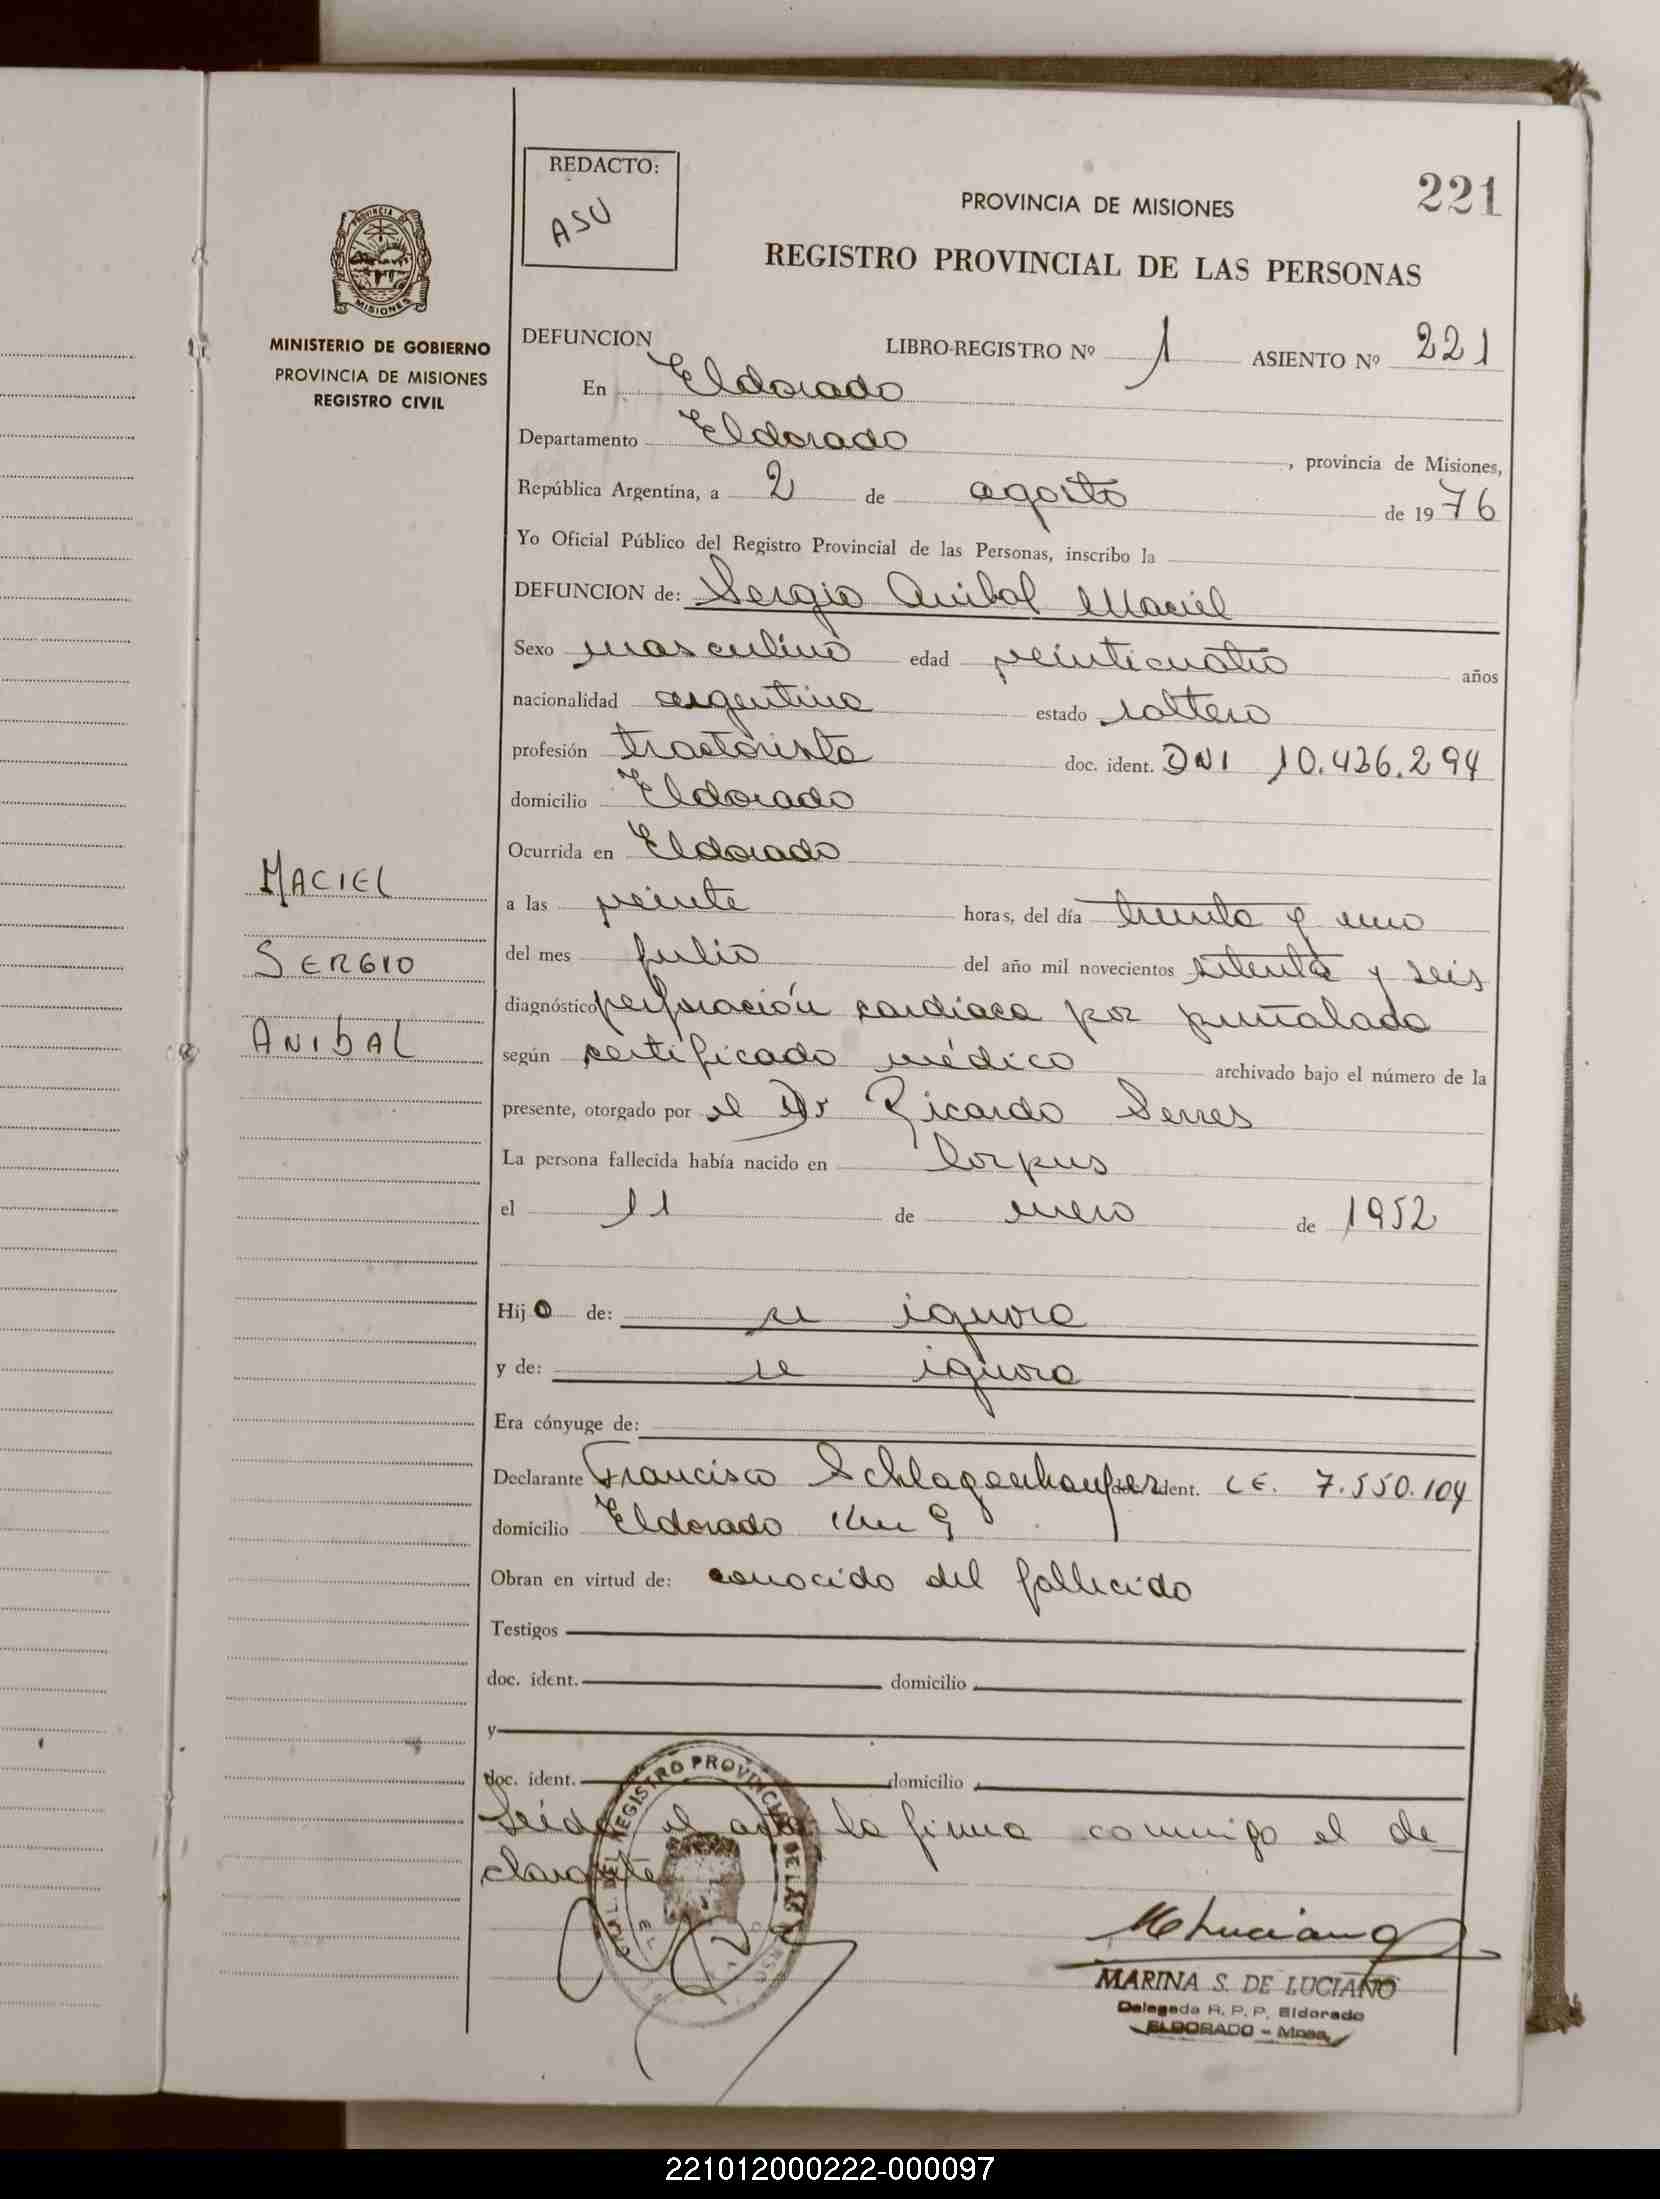 REDACTO:
ASU
221
PROVINCIA DE MISIONES
REGISTRO PROVINCIAL DE LAS PERSONAS
PROVINCIA DE
MISIONES
MINISTERIO DE GOBIERNO
PROVINCIA DE MISIONES
REGISTRO CIVIL
DEFUNCION LIBRO-REGISTRO Nº 1 ASIENTO Nº 221
En Eldorado
Departamento Eldorado , provincia de Misiones,
República Argentina, a 2 de agosto de 1976
Yo Oficial Público del Registro Provincial de las Personas, inscribo la
DEFUNCION de: Sergio Anibal Maciel
Sexo masculino edad veinticuatro años
nacionalidad argentina estado soltero
profesión tractorista doc. ident. DNI 10.436.294
domicilio Eldorado
Ocurrida en Eldorado
MACIEL
a las veinte horas, del día treinta y uno
SERGIO
del mes julio del año mil novecientos setenta y seis
diagnóstico perforación cardiaca por puñalada
ANIBAL
según certificado médico archivado bajo el número de la
presente, otorgado por el Dr Ricardo Serres
La persona fallecida había nacido en Corpus
el 11 de enero de 1952
Hijo de: se ignora
y de: se ignora
Era cónyuge de:
Declarante Francisco Schlagenhaufer doc. ident. LE. 7.550.104
domicilio Eldorado km 9
Obran en virtud de: conocido del fallecido
Testigos
doc. ident. domicilio
y
doc. ident. domicilio
Leída el acta la firma conmigo el de
clarante
REGISTRO PROVINCIAL DE LAS
MLuciano
MARINA S. DE LUCIANO
Delegada R. P. P. Eldorado
ELDORADO - Mnes.
221012000222-000097